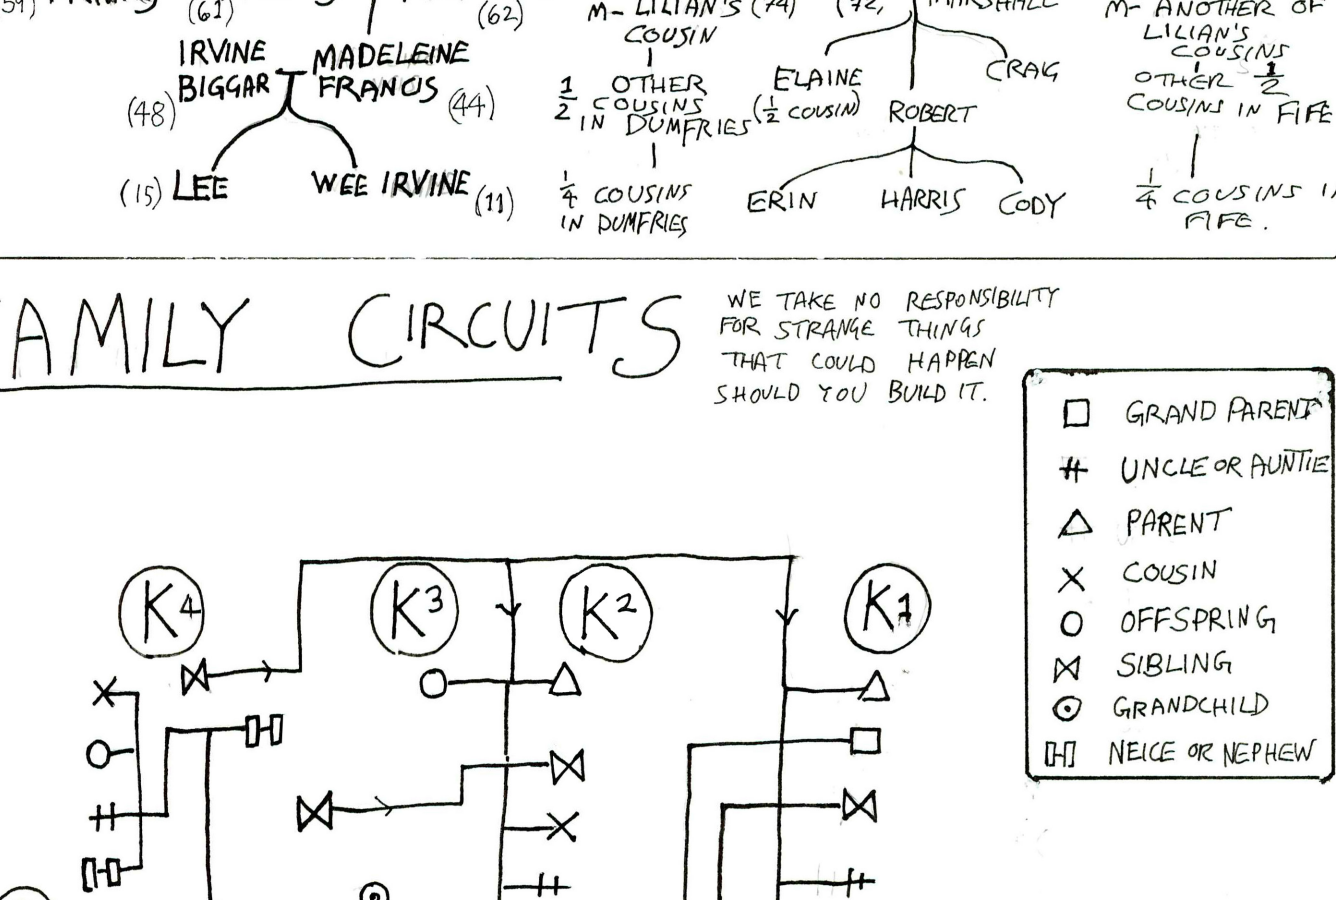 (61)
(62)
IRVINE
BIGGAR
MADELEINE
FRANCIS
(48)
(44)
(15) LEE
WEE IRVINE (11)
M- LILIAN'S (74)
COUSIN
1/2 OTHER
COUSINS
IN DUMFRIES
1/4 COUSINS
IN DUMFRIES
(72,
MARSHALL
ELAINE
(1/2 COUSIN)
ROBERT
CRAIG
ERIN
HARRIS
CODY
M- ANOTHER OF
LILIAN'S
COUSINS
OTHER 1/2
COUSINS IN FIFE
1/4 COUSINS IN
FIFE.
AMILY CIRCUITS
WE TAKE NO RESPONSIBILITY
FOR STRANGE THINGS
THAT COULD HAPPEN
SHOULD YOU BUILD IT.
GRAND PARENT
UNCLE OR AUNTIE
PARENT
COUSIN
OFFSPRING
SIBLING
GRANDCHILD
NEICE OR NEPHEW
K4
K3
K2
K1